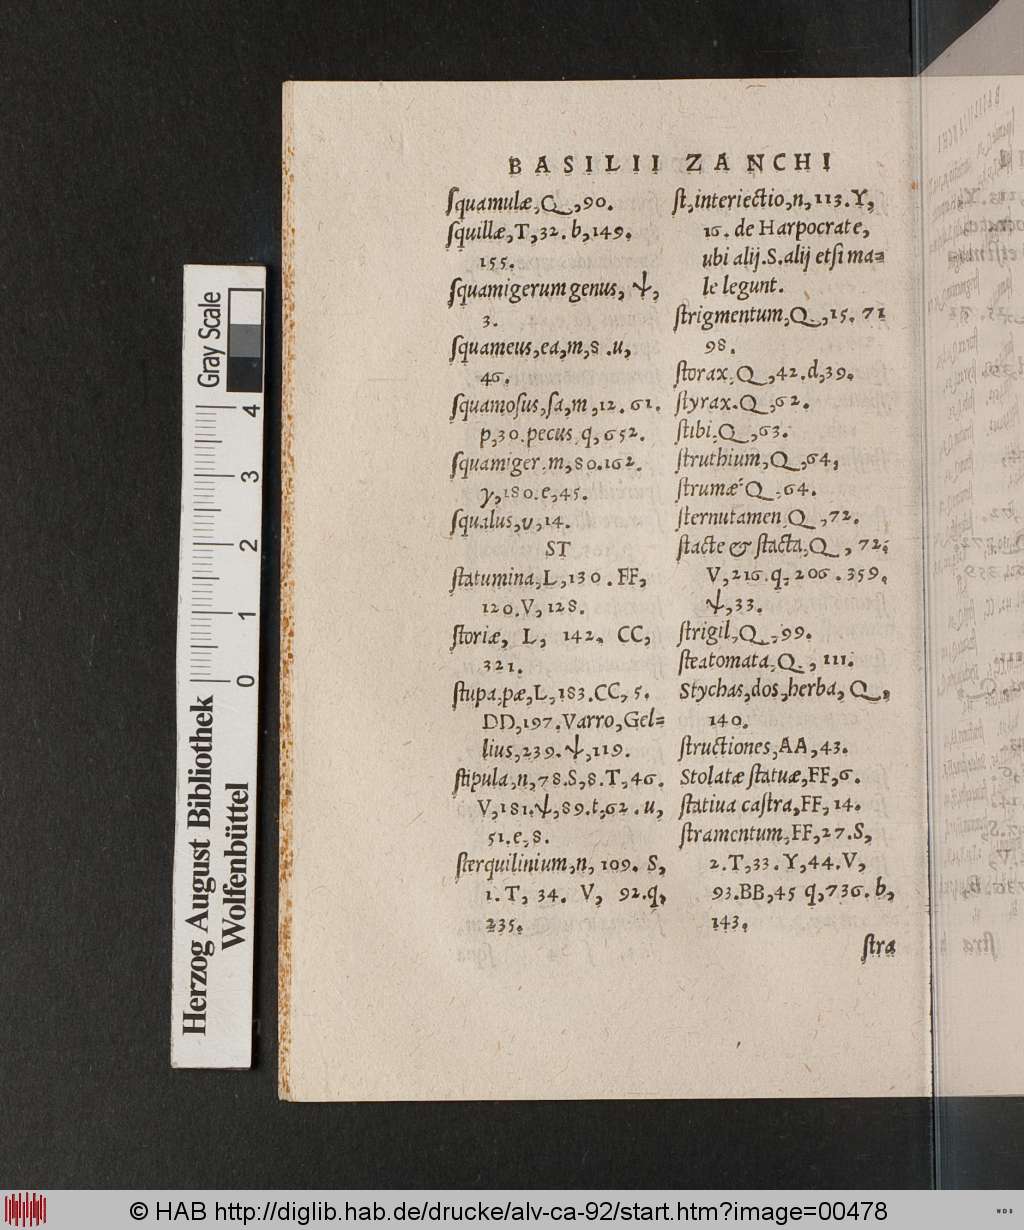 BASILII ZANCHI
ſquamulæ, Q, 90.
ſquillæ, T, 32. b, 149.
155.
ſquamigerum genus, Ψ,
3.
ſquameus, ea, m, 8. u,
46.
ſquamoſus, ſa, m, 12. 61.
p, 30. pecus, q, 652.
ſquamiger. m, 80. 162.
γ, 180. e, 45.
ſqualus, υ, 14.
ST
ſtatumina, L, 130. FF,
120. V, 128.
ſtoriæ, L, 142. CC,
321.
ſtupa, pæ, L, 183. CC, 5.
DD, 197. Varro, Gel=
lius, 239. Ψ, 119.
ſtipula, n, 78. S, 8. T, 46.
V, 181. Ψ, 89. t, 62. u,
51. e, 8.
ſterquilinium, n, 109. S,
1. T, 34. V, 92. q,
235.
ſt, interiectio, n, 113. Y,
16. de Harpocrate,
ubi alij. S. alij etſi ma=
le legunt.
ſtrigmentum, Q, 15. 71
98.
ſtorax, Q, 42. d, 39.
ſtyrax. Q, 62.
ſtibi, Q, 63.
ſtruthium, Q, 64,
ſtrumæ Q, 64.
ſternutamen, Q, 72.
ſtacte & ſtacta, Q, 72.
V, 216. q, 206. 359.
Ψ, 33.
ſtrigil, Q, 99.
ſteatomata, Q, 111.
Stychas, dos, herba, Q,
140.
ſtructiones, AA, 43.
Stolatæ ſtatuæ, FF, 6.
ſtatiua caſtra, FF, 14.
ſtramentum, FF, 27. S,
2. T, 33. Y, 44. V,
93. BB, 45 q, 736. b,
143.
ſtra
Gray Scale
0 1 2 3 4
Herzog August Bibliothek
Wolfenbüttel
© HAB http://diglib.hab.de/drucke/alv-ca-92/start.htm?image=00478